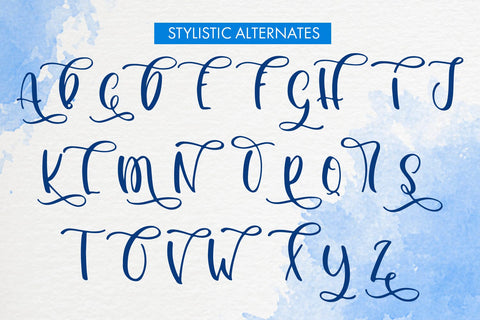 STYLISTIC ALTERNATES
A B C D E F G H I J
K L M N O P Q R S
T U V W X Y Z